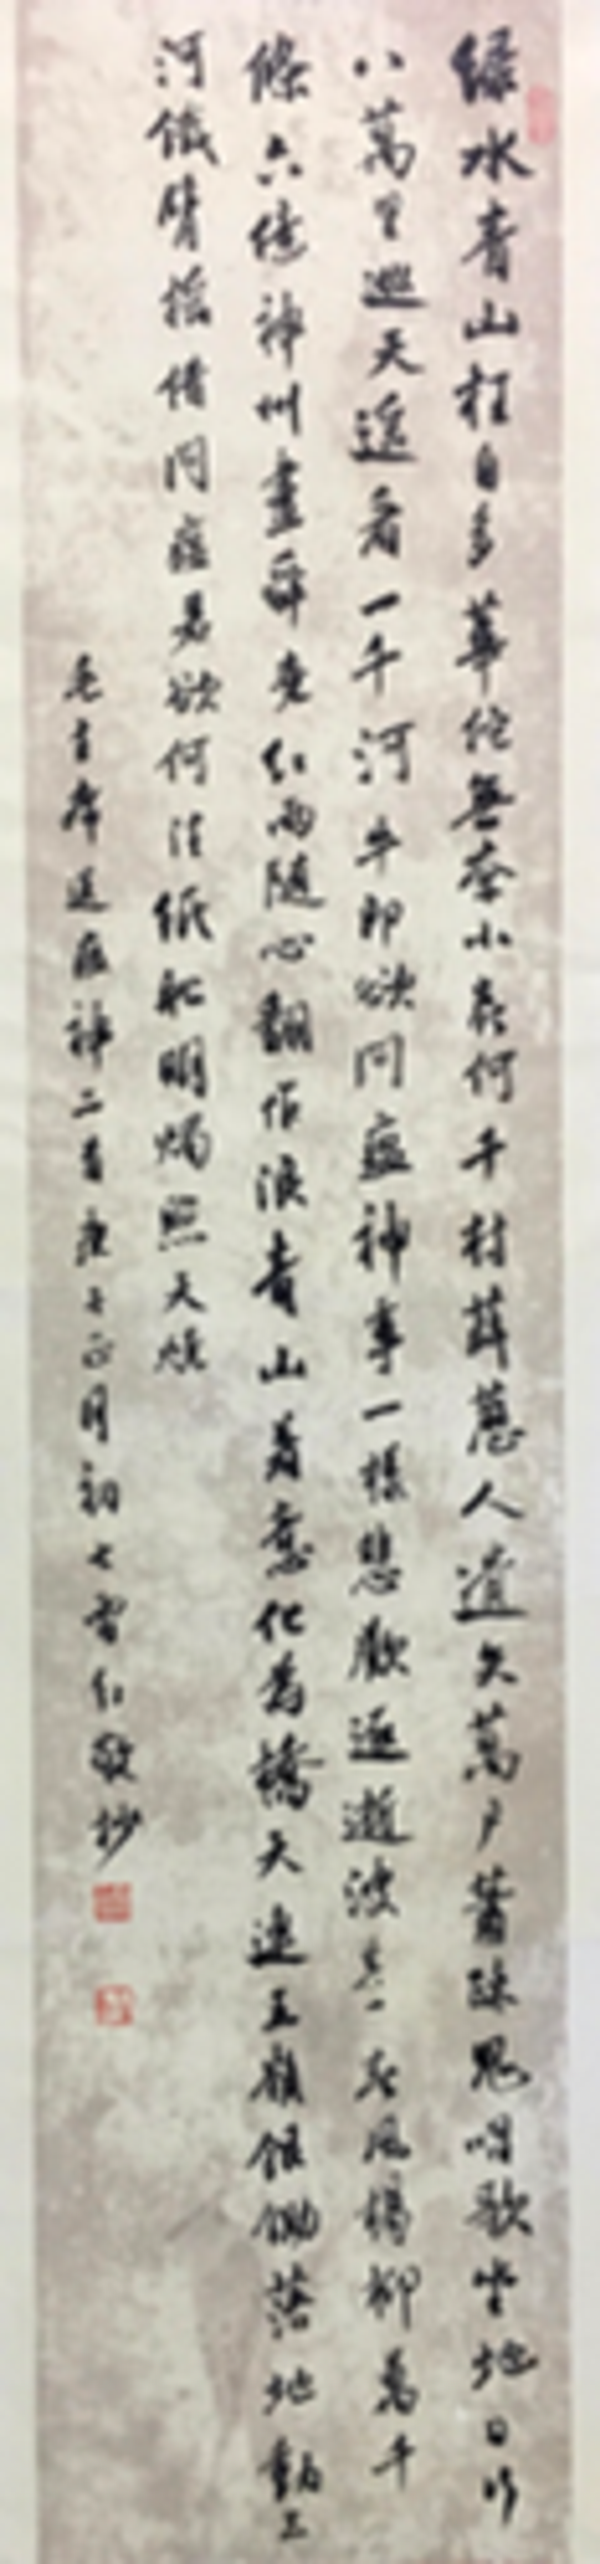 绿水青山枉自多華佗無奈小虫何千村薜苈人遗矢萬户蕭疎鬼唱歌坐地日行
八萬里巡天遥看一千河牛郎欲问瘟神事一樣悲歡逐逝波其一春风楊柳萬千
條六億神州盡舜尧红雨随心翻作浪青山着意化為橋天連五嶺銀锄落地動三
河鐵臂摇借问瘟君欲何往纸船明烛照天燒
毛主席送瘟神二首庚子正月初七雪红敬抄